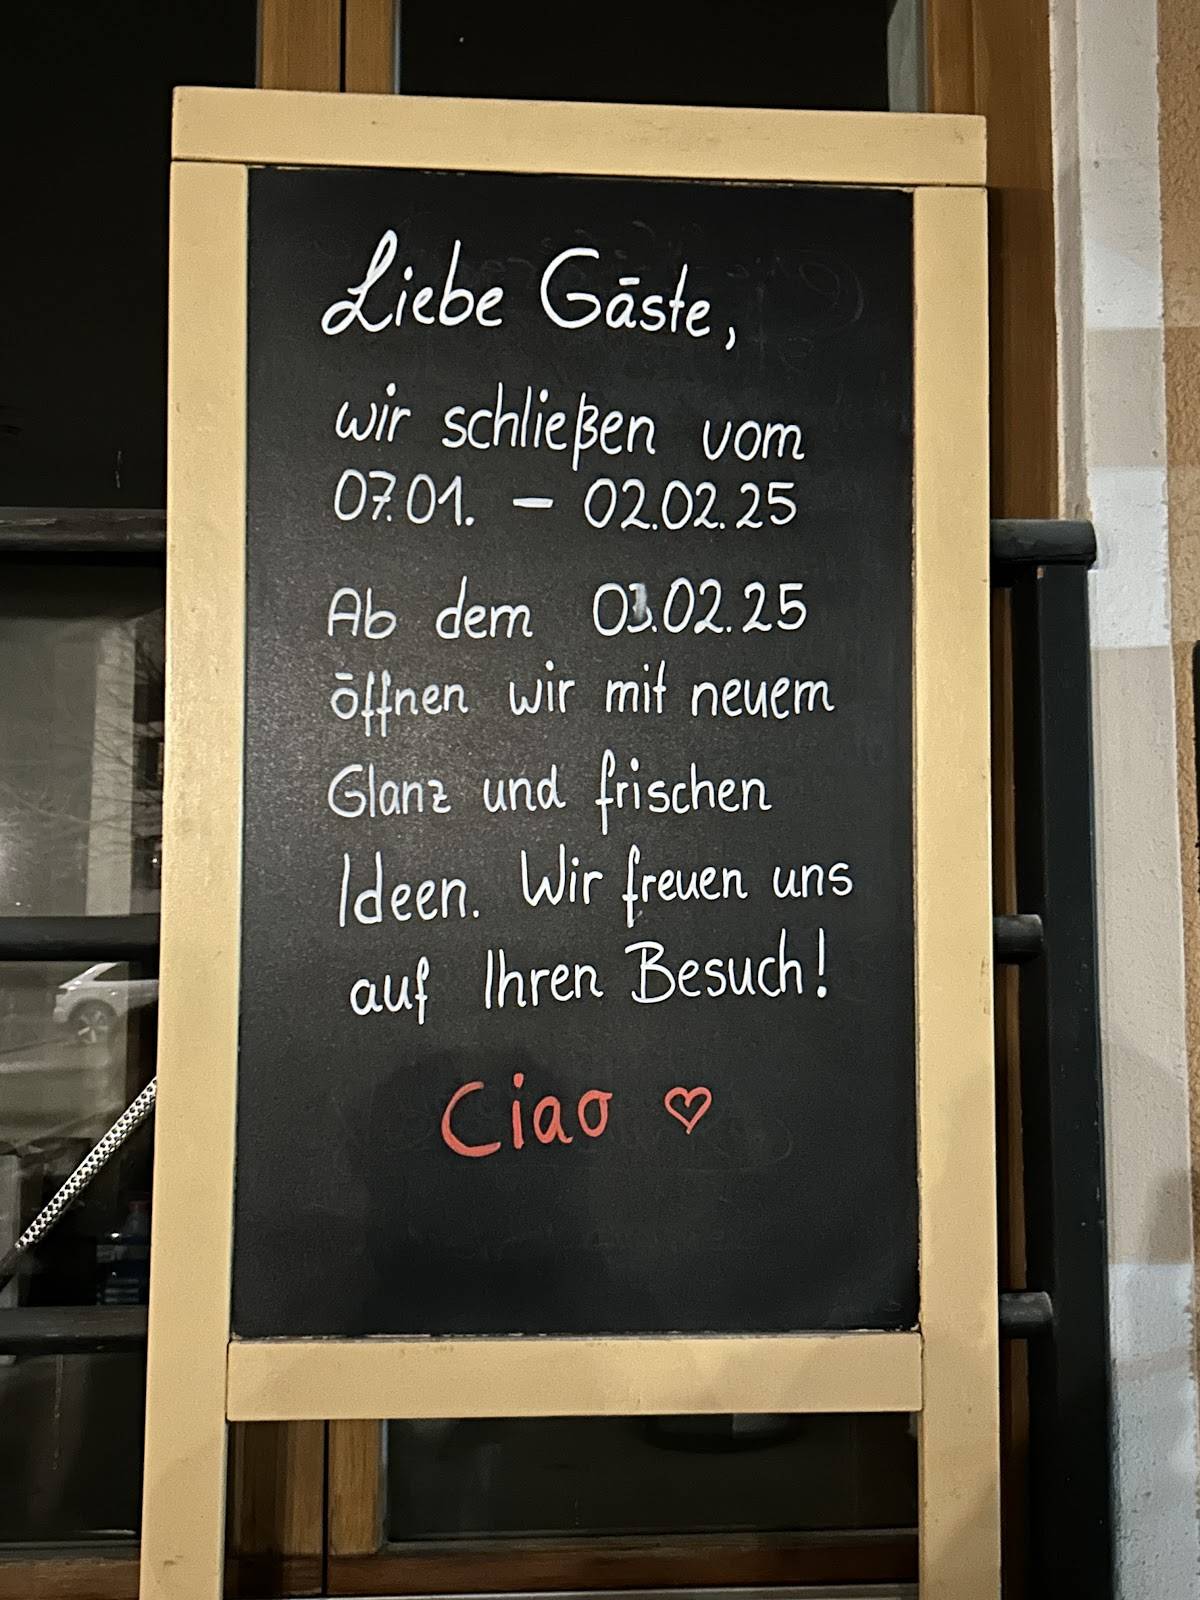 Liebe Gäste,
wir schließen vom
07.01. – 02.02.25
Ab dem 03.02.25
öffnen wir mit neuem
Glanz und frischen
Ideen. Wir freuen uns
auf Ihren Besuch!
Ciao ♡